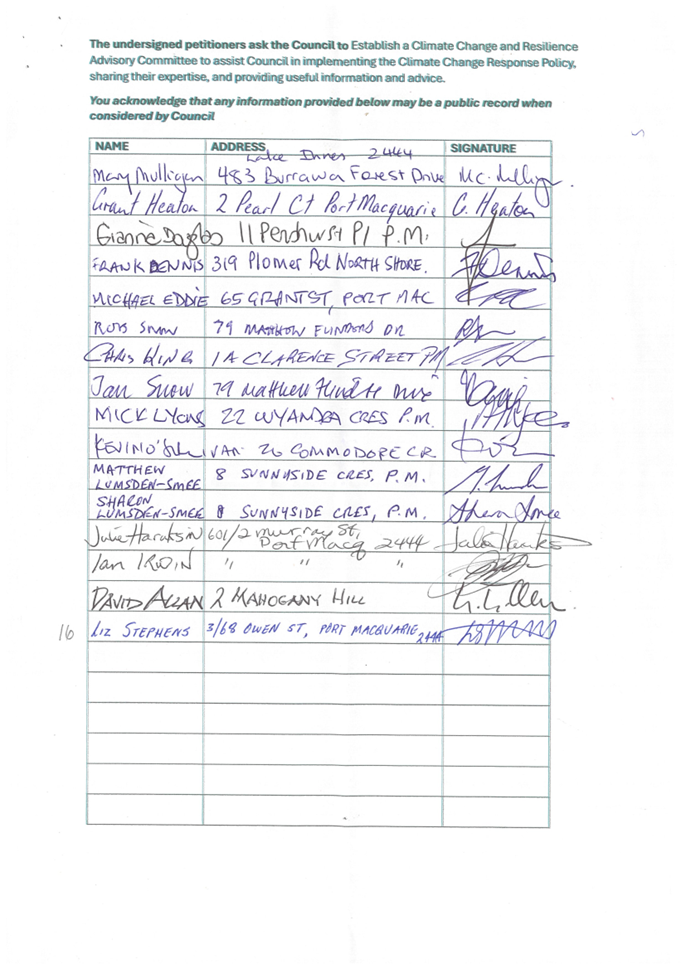 The undersigned petitioners ask the Council to Establish a Climate Change and Resilience
Advisory Committee to assist Council in implementing the Climate Change Response Policy,
sharing their expertise, and providing useful information and advice.
You acknowledge that any information provided below may be a public record when
considered by Council
NAME ADDRESS SIGNATURE
2444
Mary Mulligan 483 Burrawan Forest Drive
Grant Heaton 2 Pearl Ct Port Macquarie G. Heaton
11 Penshurst Pl P.M.
FRANK DENNIS 319 Plomer Rd NORTH SHORE. F Dennis
MICHAEL EDDIE 65 GRANT ST, PORT MAC
ROSS SNOW 79 MATTHEW FLINDERS DR
CHRIS KING 1A CLARENCE STREET PM
Jan Snow 79 Matthew Flinders Drive
MICK LYONS 22 WYANDRA CRES P.M.
KEVIN O'SULLIVAN 26 COMMODORE CR
MATTHEW
LUMSDEN-SMEE 8 SUNNYSIDE CRES, P.M.
SHARON
LUMSDEN-SMEE 8 SUNNYSIDE CRES, P.M.
Julie 601/2 Murray St,
Port Macq 2444
Ian IRWIN " " "
DAVID ALLAN 2 MAHOGANY HILL
16 LIZ STEPHENS 3/68 OWEN ST, PORT MACQUARIE 2444